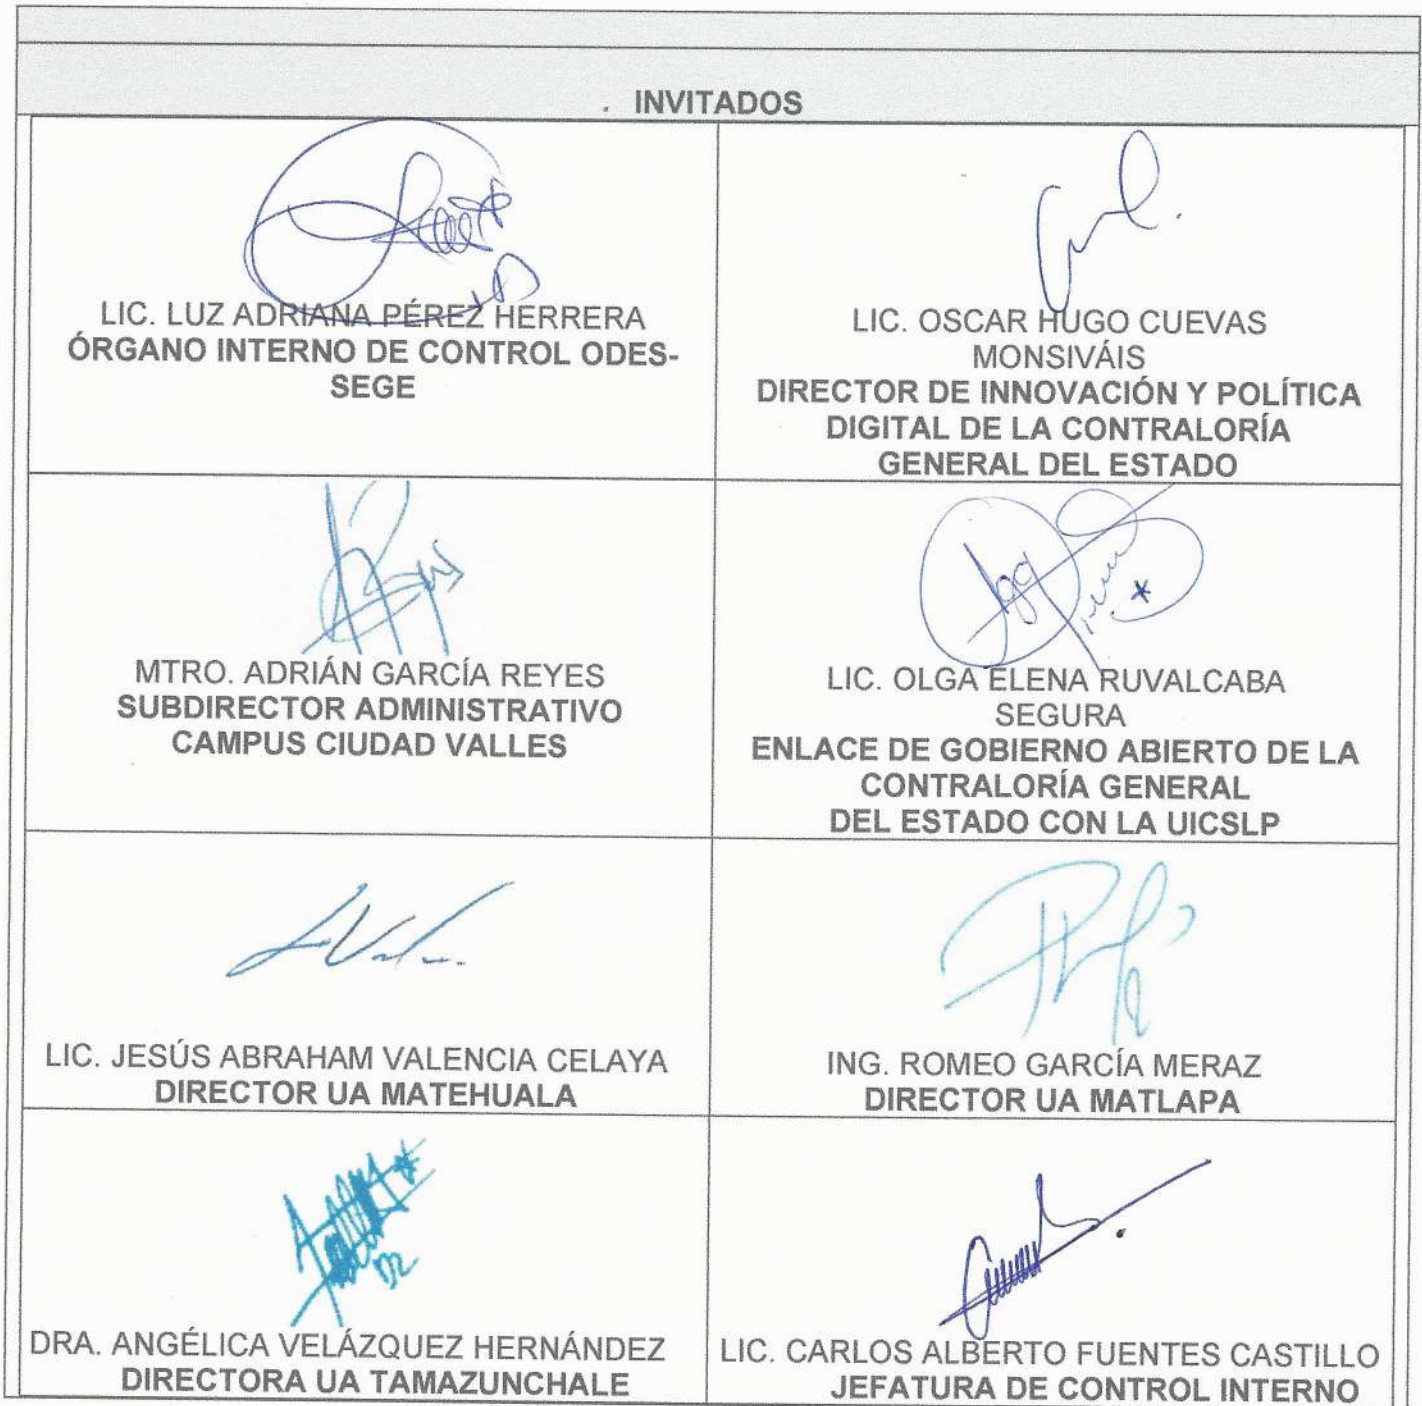 INVITADOS
LIC. LUZ ADRIANA PÉREZ HERRERA
ÓRGANO INTERNO DE CONTROL ODES-
SEGE
LIC. OSCAR HUGO CUEVAS
MONSIVÁIS
DIRECTOR DE INNOVACIÓN Y POLÍTICA
DIGITAL DE LA CONTRALORÍA
GENERAL DEL ESTADO
MTRO. ADRIÁN GARCÍA REYES
SUBDIRECTOR ADMINISTRATIVO
CAMPUS CIUDAD VALLES
LIC. OLGA ELENA RUVALCABA
SEGURA
ENLACE DE GOBIERNO ABIERTO DE LA
CONTRALORÍA GENERAL
DEL ESTADO CON LA UICSLP
LIC. JESÚS ABRAHAM VALENCIA CELAYA
DIRECTOR UA MATEHUALA
ING. ROMEO GARCÍA MERAZ
DIRECTOR UA MATLAPA
DRA. ANGÉLICA VELÁZQUEZ HERNÁNDEZ
DIRECTORA UA TAMAZUNCHALE
LIC. CARLOS ALBERTO FUENTES CASTILLO
JEFATURA DE CONTROL INTERNO